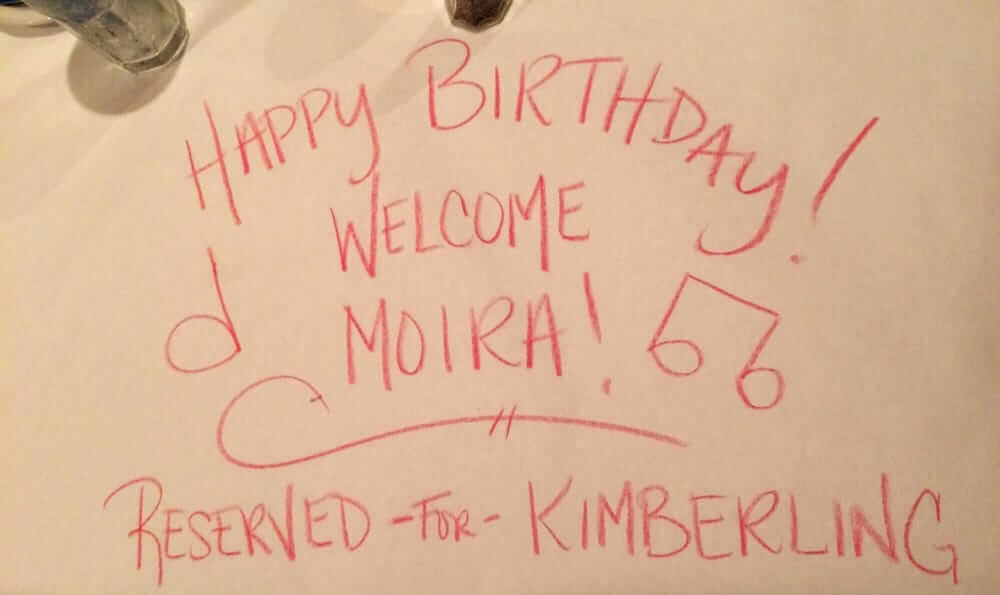 HAPPY BIRTHDAY!
WELCOME
MOIRA!
RESERVED -FOR- KIMBERLING